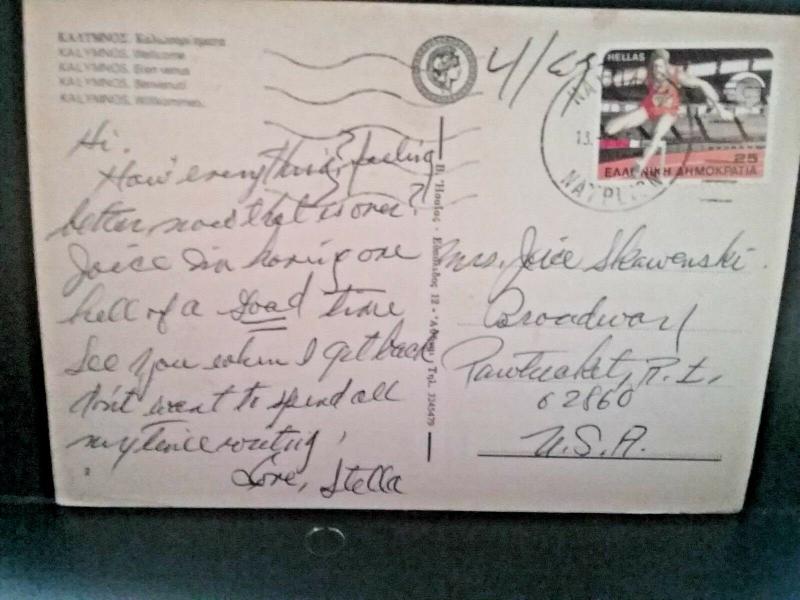 ΚΑΛΥΜΝΟΣ. Καλωσορίσματα
KALYMNOS. Wellcome
KALYMNOS. Bien venus
KALYMNOS. Benvenuti
KALYMNOS. Willkommen.
4/
HELLAS
25
ΕΛΛΗΝΙΚΗ ΔΗΜΟΚΡΑΤΙΑ
13.
ΝΑΥΠΛΙΟΝ
Hi.
How' everything, feeling
better now that is over?
Joice I'm having one
hell of a good time
See you when I get back
don't want to spend all
my time writing,
Love, Stella
2
12 - Ἀθῆναι Τηλ. 3245479
Mrs. Joice Skawenski.
Broadway
Pawtucket, R.I.,
02860
U.S.A.